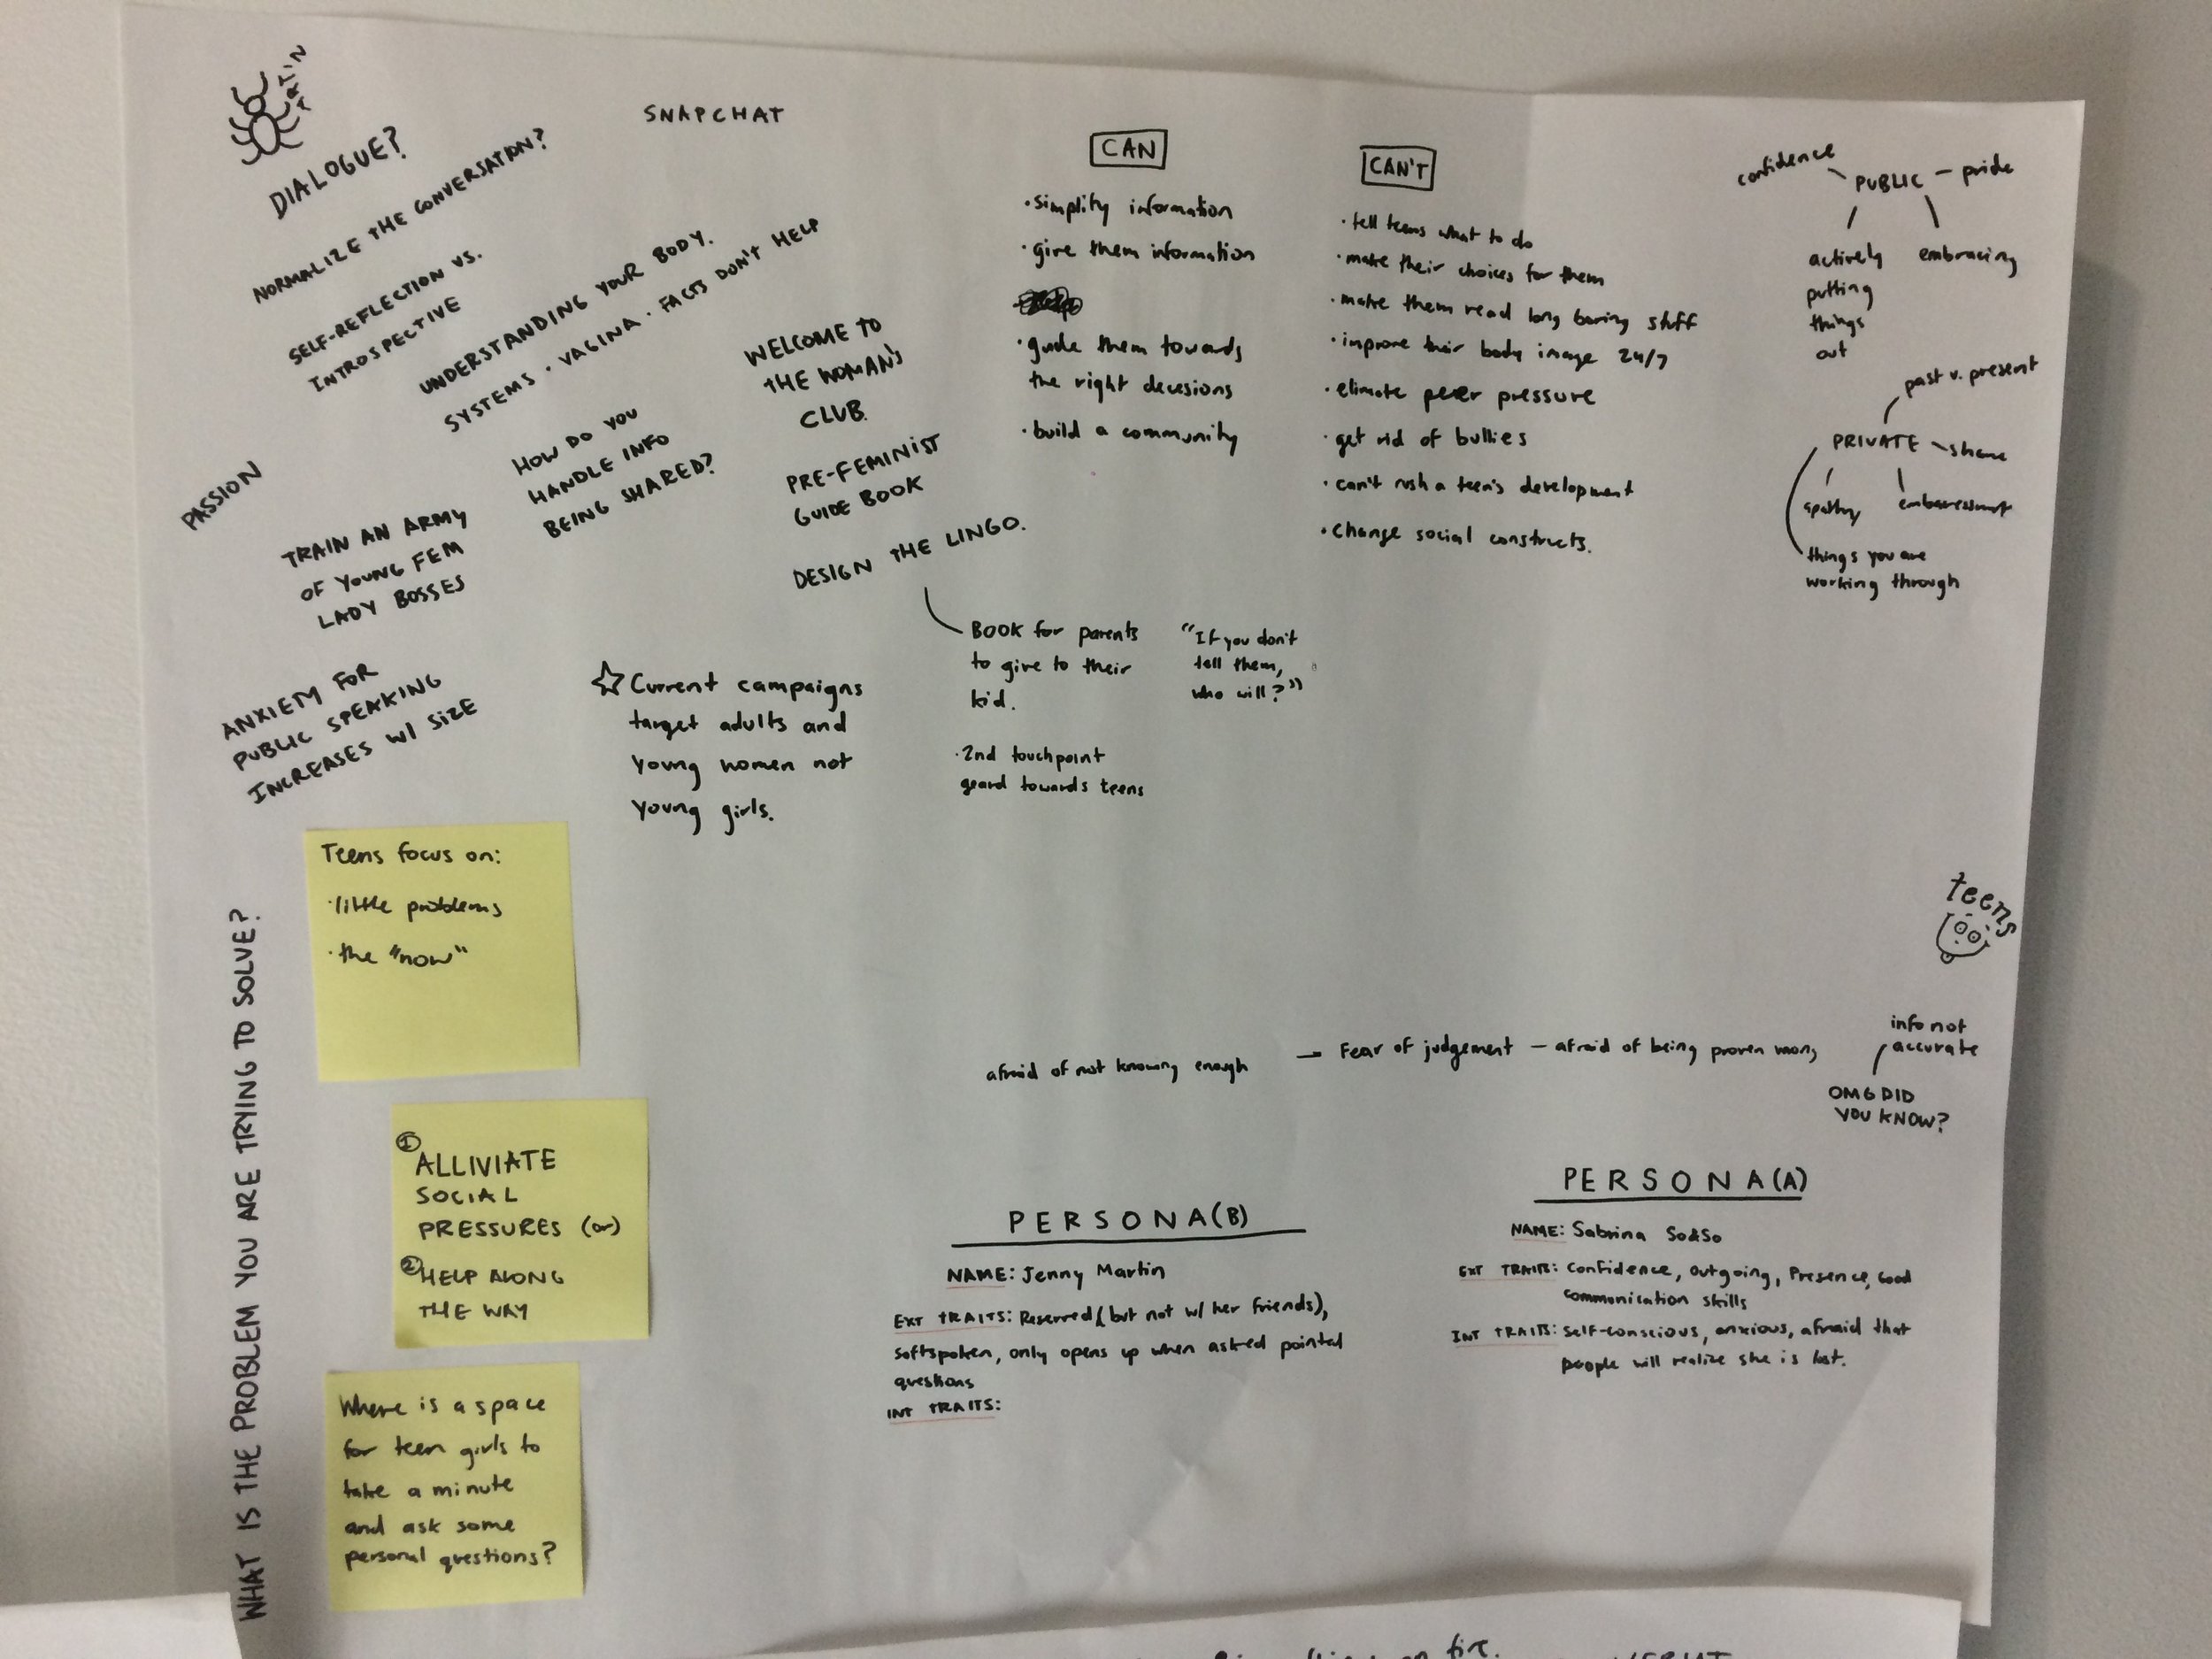 DIALOGUE?
NORMALIZE THE CONVERSATION?
SELF-REFLECTION VS.
INTROSPECTIVE
UNDERSTANDING YOUR BODY.
SYSTEMS · VAGINA · FACTS DON'T HELP
SNAPCHAT
HOW DO YOU
HANDLE INFO
BEING SHARED?
WELCOME TO
THE WOMAN'S
CLUB.
PRE-FEMINIST
GUIDE BOOK
DESIGN THE LINGO.
PASSION
TRAIN AN ARMY
OF YOUNG FEM
LADY BOSSES
ANXIETY FOR
PUBLIC SPEAKING
INCREASES W/ SIZE
☆ Current campaigns
target adults and
young women not
young girls.
BOOK for parents
to give to their
kid.
"If you don't
tell them,
who will?"
· 2nd touchpoint
geard towards teens
CAN
· simplify information
· give them information
· guide them towards
the right decesions
· build a community
CAN'T
· tell teens what to do
· make their choices for them
· make them read long boring stuff
· improve their body image 24/7
· elimate peer pressure
· get rid of bullies
· can't rush a teen's development
· change social constructs.
confidence
PUBLIC - pride
actively
putting
things
out
embracing
past v. present
PRIVATE - shame
apathy
embaressment
things you are
working through
teens
WHAT IS THE PROBLEM YOU ARE TRYING TO SOLVE?
Teens focus on:
· little problems
· the "now"
① ALLIVIATE
SOCIAL
PRESSURES (or)
② HELP ALONG
THE WAY
Where is a space
for teen girls to
take a minute
and ask some
personal questions?
afraid of not knowing enough — Fear of judgement — afraid of being proven wrong
info not
accurate
OMG DID
YOU KNOW?
PERSONA(B)
NAME: Jenny Martin
EXT TRAITS: Reserved (but not w/ her friends),
softspoken, only opens up when asked pointed
questions
INT TRAITS:
PERSONA(A)
NAME: Sabrina So&So
EXT TRAITS: Confidence, outgoing, Presence, Good
communication skills
INT TRAITS: Self-conscious, anxious, afraid that
people will realize she is lost.
fire.